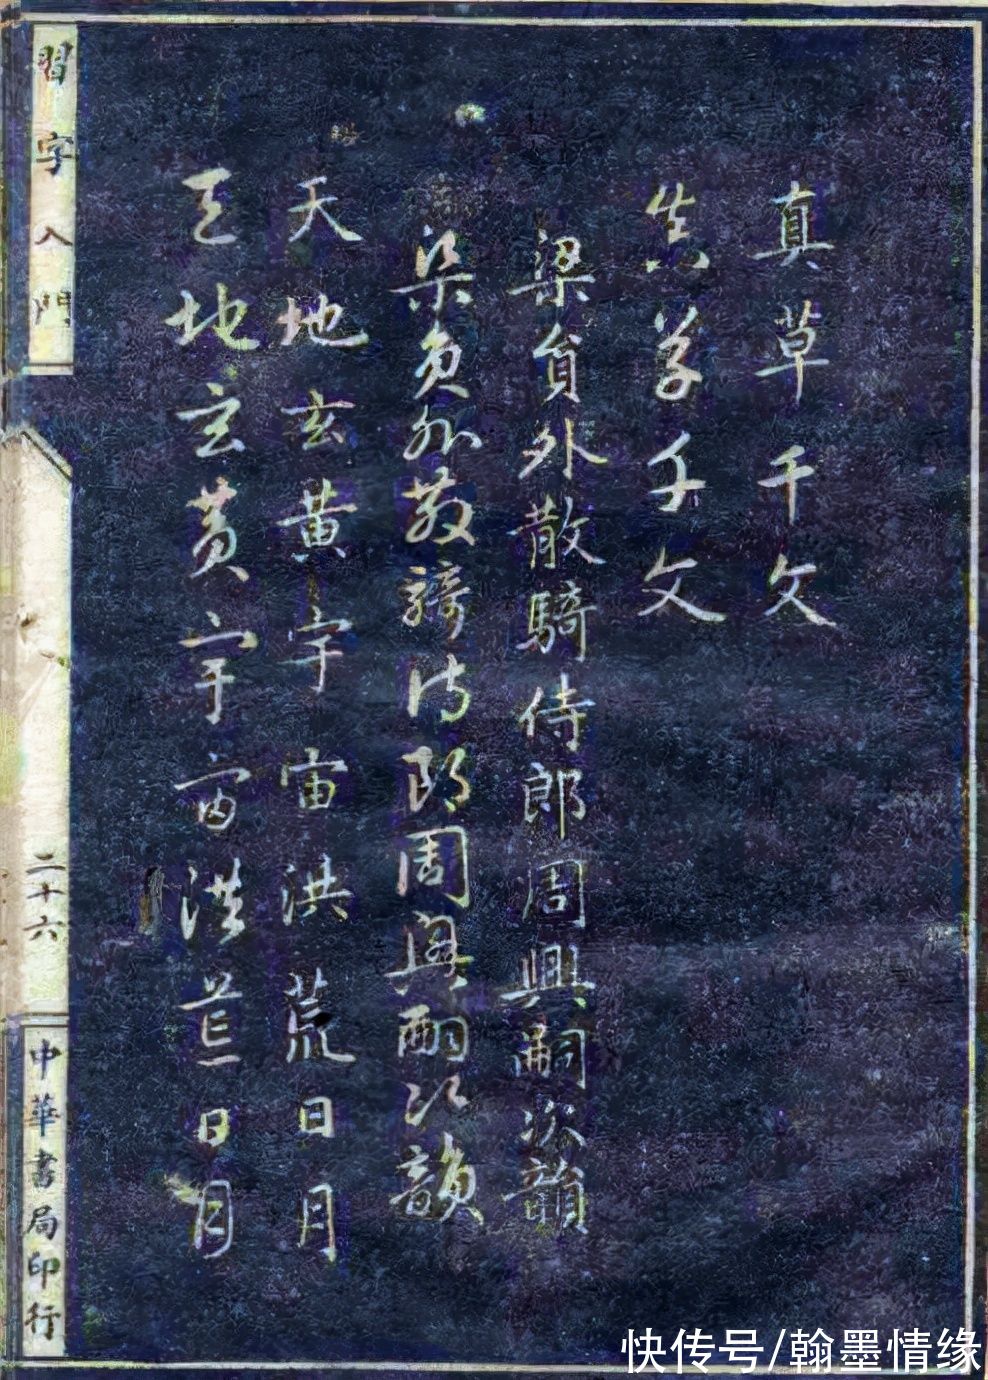 真草千文
真草千文
梁員外散騎侍郎周興嗣次韻
梁員外散騎侍郎周興嗣次韻
天地玄黃宇宙洪荒日月
天地玄黃宇宙洪荒日月
習字入門
二十六
中華書局印行
快传号/翰墨情缘